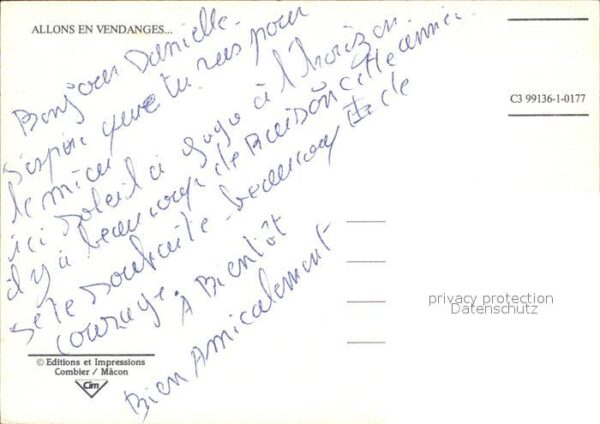 ALLONS EN VENDANGES...
Bonjour Danielle.
J'espère que tu vas pour
le mieu
ici soleil à gogo à l'horizon.
il y a beaucoup de Raisin cette année.
Je te souhaite beaucoup de
courage. A Bientôt
Bien Amicalement
C3 99136-1-0177
© Editions et Impressions
Combier / Mâcon
Cim
privacy protection
Datenschutz